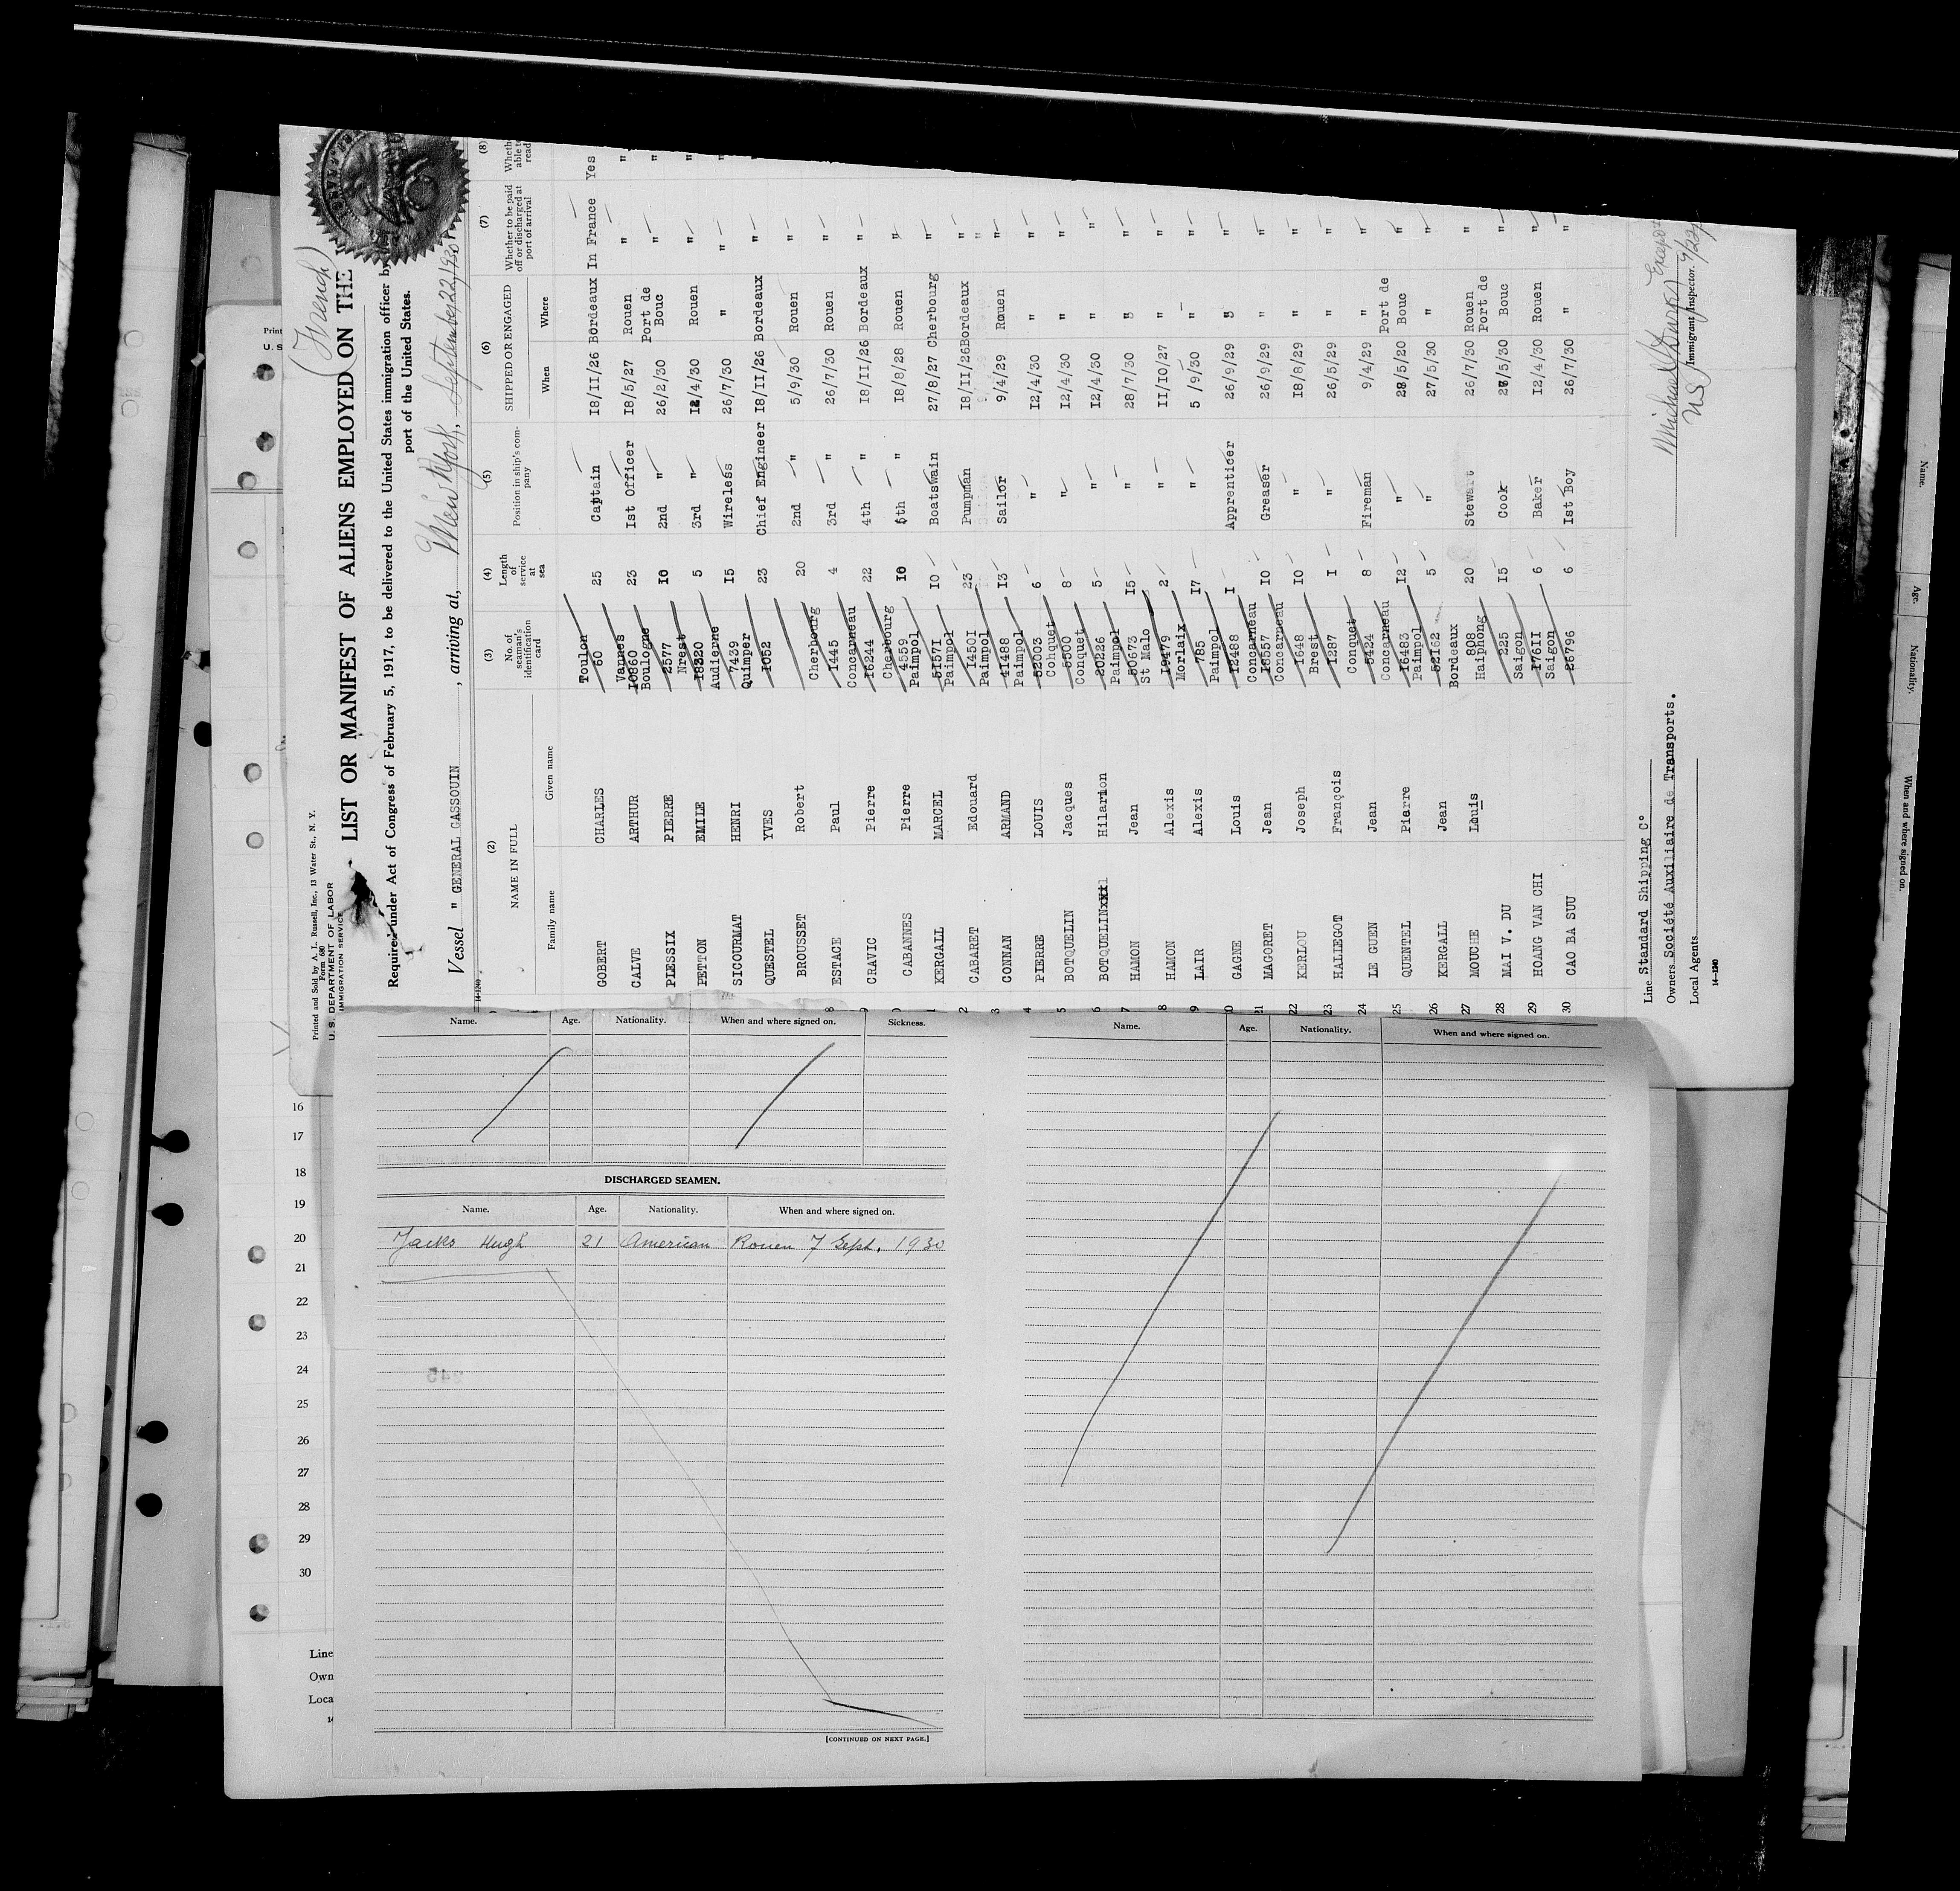 (French)
Printed and Sold by A. L. Russell, Inc., 13 Water St., N. Y.
Form 680
U. S. DEPARTMENT OF LABOR
IMMIGRATION SERVICE
LIST OR MANIFEST OF ALIENS EMPLOYED ON THE
Required under Act of Congress of February 5, 1917, to be delivered to the United States immigration officer by
port of the United States.
Vessel " GENERAL GASSOUIN , arriving at, New York, September 22, 1930
(2) (3) (4) (5) (6) (7) (8)
NAME IN FULL No. of seaman's identification card Length of service at sea Position in ship's company SHIPPED OR ENGAGED Whether to be paid off or discharged at port of arrival
Family name Given name When Where
GOBERT CHARLES Toulon 60 25 Captain 18/11/26 Bordeaux In France Yes
CALVE ARTHUR Vannes 10860 23 Ist Officer 18/5/27 Rouen " "
PLESSIX PIERRE Boulogne 2577 10 2nd " 26/2/30 Port de Bouc " "
PETTON EMILE 5 3rd " Rouen " "
SICOURMAT HENRI Audierne 7439 15 Wireless 26/7/30 " " "
QUESTEL YVES Quimper 1052 23 Chief Engineer 18/11/26 Bordeaux " "
BROUSSET Robert 20 2nd " 5/9/30 Rouen "
ESTACE Paul Cherbourg 1445 4 3rd " 26/7/30 Rouen "
CRAVIC Pierre Concarneau 16244 22 4th " 18/11/26 Bordeaux "
CABANNES Pierre Cherbourg 4559 10 5th " 18/8/28 Rouen "
KERGALL MARCEL Paimpol 51571 10 Boatswain 27/8/27 Cherbourg "
CABARET Edouard Paimpol 14501 23 Pumpman 18/11/26 Bordeaux "
CONNAN ARMAND Paimpol 41488 13 Sailor 9/4/29 Rouen "
PIERRE LOUIS Paimpol 52003 6 " 12/4/30 " "
BOTQUELIN Jacques Conquet 5500 8 " 12/4/30 " "
BOTQUELIN Hilarion Conquet 20226 5 " 12/4/30 " "
HAMON Jean Paimpol 50673 15 " 28/7/30 " "
HAMON Alexis St Malo 19479 2 " 11/10/27 " "
LAIR Alexis Morlaix 785 17 " 5/9/30 " "
GAGNE Louis Paimpol 12488 I Apprenticer 26/9/29 " "
21 MAGORET Jean Concarneau 18557 10 Greaser 26/9/29 " "
22 KERLOU Joseph Concarneau 1648 10 " 18/8/29 " "
23 HALLEGOT François Brest 1287 I " 26/5/29 " "
24 LE GUEN Jean Conquet 5424 8 Fireman 9/4/29 " "
25 QUENTEL Pierre Concarneau 16483 12 " 28/5/20 Port de Bouc "
26 KERGALL Jean Paimpol 52162 5 " 27/5/30 " "
27 MOUCHE Louis Bordeaux 808 20 Stewart 26/7/30 Rouen "
28 MAI V. DU Haiphong 225 15 Cook 26/5/30 Port de Bouc "
29 HOANG VAN CHI Saigon 17611 6 Baker 12/4/30 Rouen "
30 CAO BA SUU Saigon 26796 6 Ist Boy 26/7/30 " "
Line Standard Shipping C°
Owners Société Auxiliaire de Transports.
Local Agents
14—1240
U S Immigrant Inspector. 9/22/
Name. Age. Nationality. When and where signed on. Sickness.
DISCHARGED SEAMEN.
Name. Age. Nationality. When and where signed on.
Jacks Hugh 21 American Rouen 7 Sept. 1930
[CONTINUED ON NEXT PAGE.]
Name. Age. Nationality. When and where signed on.
16
17
18
19
20
21
22
23
24
25
26
27
28
29
30
Line
Own
Loca
Name. Age. Nationality. When and where signed on.